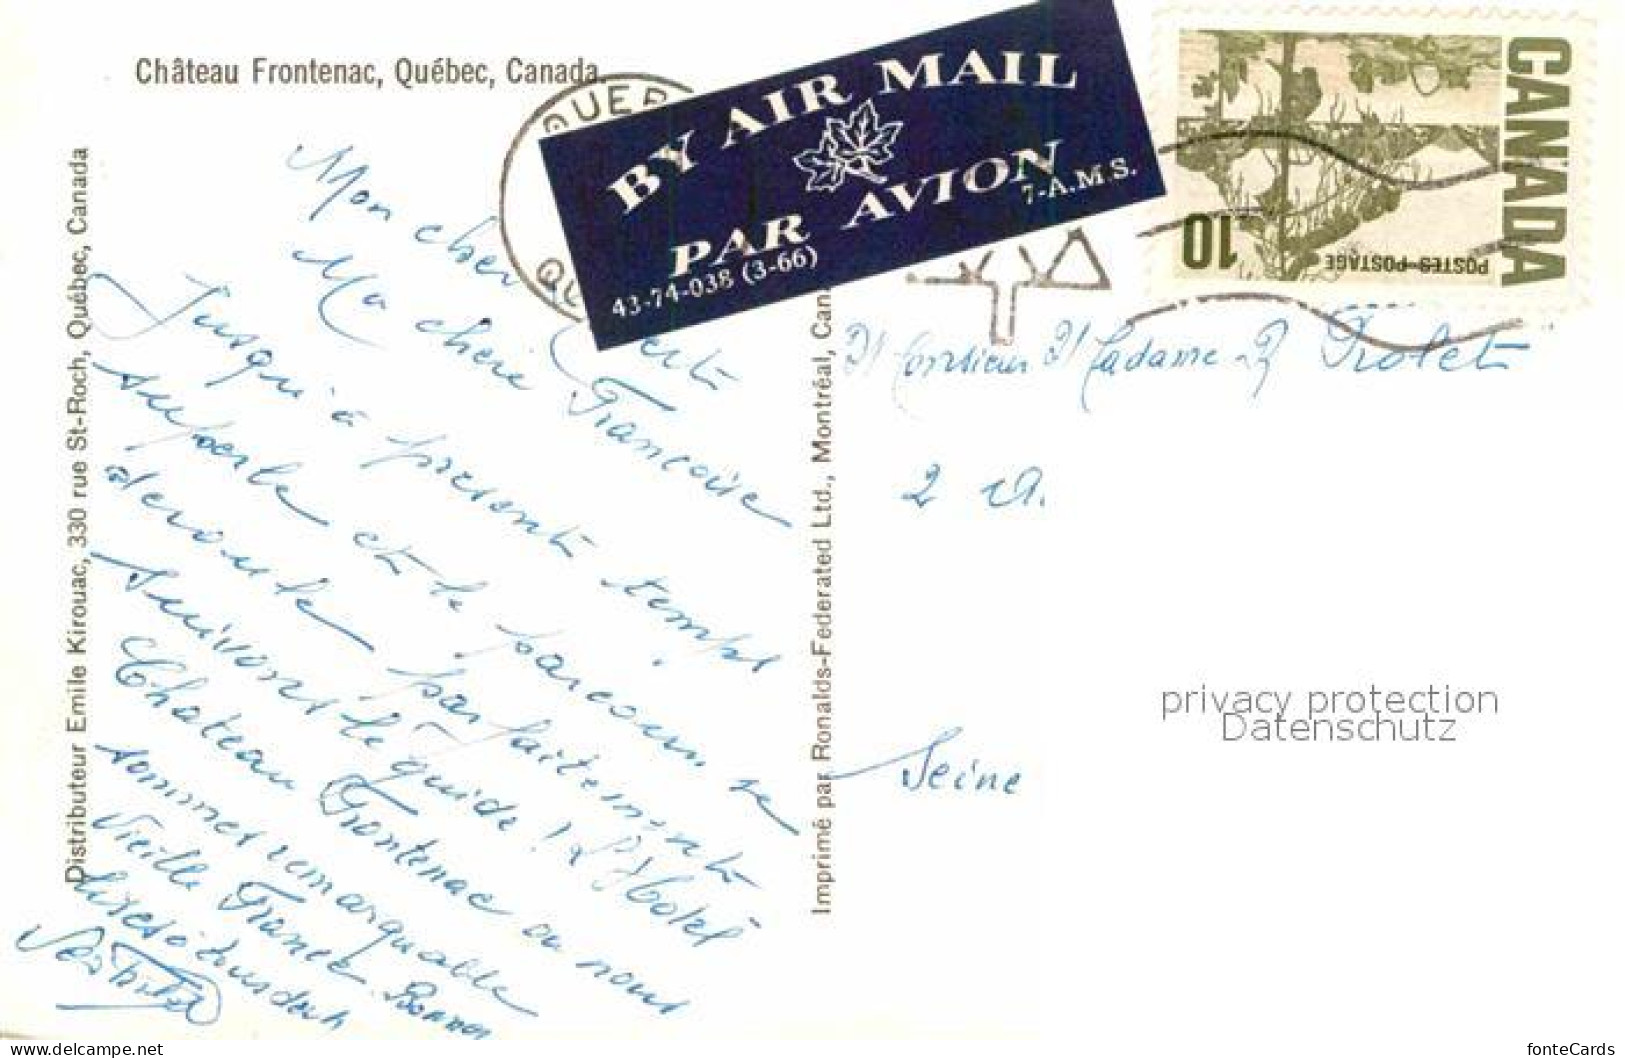 Château Frontenac, Québec, Canada.
QUEB
QU
BY AIR MAIL
PAR AVION
7-A.M.S.
43-74-038 (3-66)
CANADA
10
POSTES-POSTAGE
Distributeur Emile Kirouac, 330 rue St-Roch, Québec, Canada
Mon cher
Ma cherie Francoise
Jusqu'à présent temps
superbe et le parcours se
deroule parfaitement
suivons le guide! L'Hotel
Chateau Frontenac où nous
sommes remarquable
Vieille France. Bonnes
Imprimé par Ronalds-Federated Ltd., Montréal, Can
Monsieur Madame Piolet
2
Seine
privacy protection
Datenschutz
www.delcampe.net
fonteCards